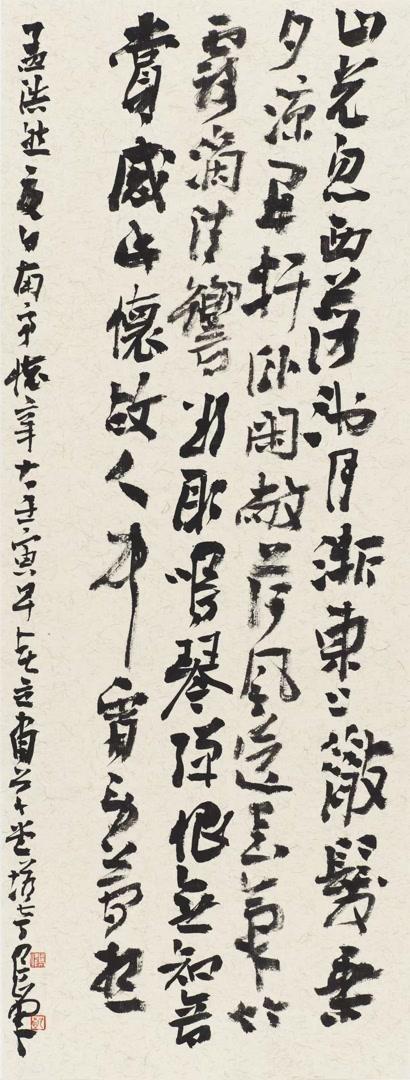 山光忽西落池月漸東上散髮乘
夕涼開軒臥閑敞荷風送香氣竹
露滴清響欲取鳴琴彈恨無知音
賞感此懷故人中宵勞夢想
孟浩然夏日南亭懷辛大壬寅年